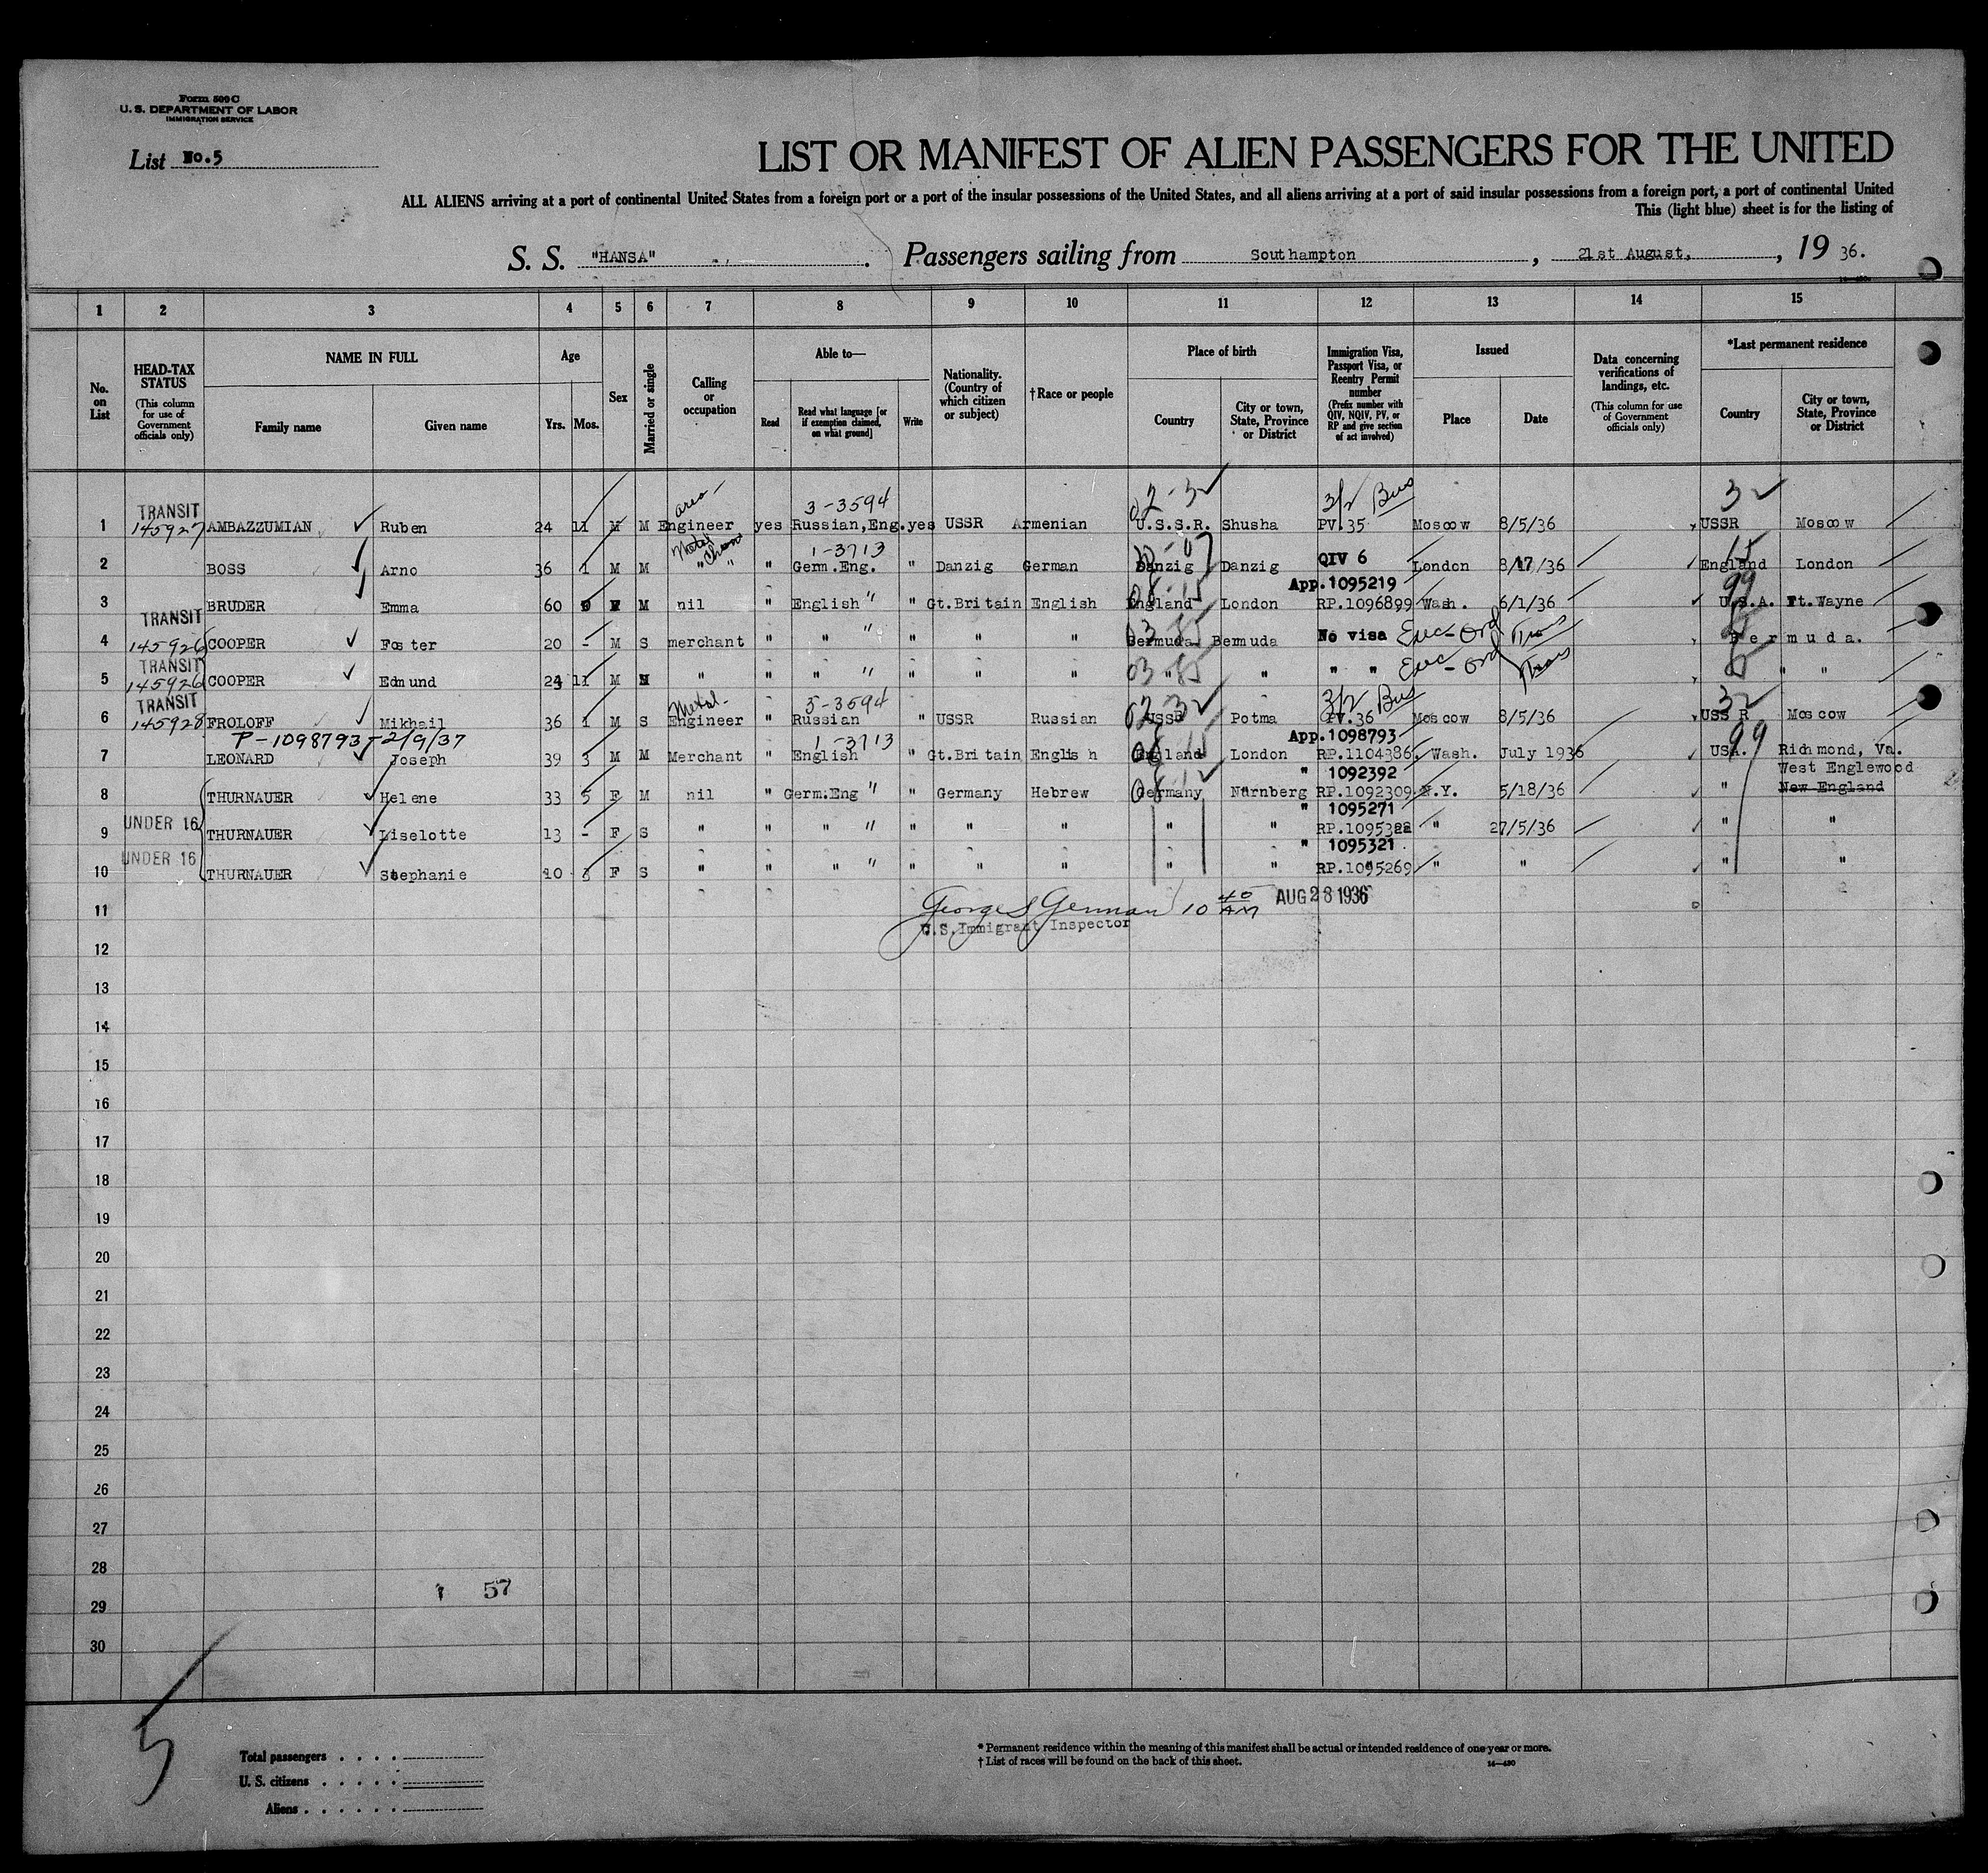 Form 509 C
U. S. DEPARTMENT OF LABOR
IMMIGRATION SERVICE
List No.5
LIST OR MANIFEST OF ALIEN PASSENGERS FOR THE UNITED
ALL ALIENS arriving at a port of continental United States from a foreign port or a port of the insular possessions of the United States, and all aliens arriving at a port of said insular possessions from a foreign port, a port of continental United
This (light blue) sheet is for the listing of
S. S. "HANSA" . Passengers sailing from Southampton , 21st August, , 19 36.
1 2 3 4 5 6 7 8 9 10 11 12 13 14 15
No. on List
HEAD-TAX STATUS (This column for use of Government officials only)
NAME IN FULL
Family name Given name
Age
Yrs. Mos.
Sex
Married or single
Calling or occupation
Able to—
Read Read what language [or if exemption claimed, on what ground] Write
Nationality. (Country of which citizen or subject)
†Race or people
Place of birth
Country City or town, State, Province or District
Immigration Visa, Passport Visa, or Reentry Permit number (Prefix number with QIV, NQIV, PV, or RP and give section of act involved)
Issued
Place Date
Data concerning verifications of landings, etc. (This column for use of Government officials only)
*Last permanent residence
Country City or town, State, Province or District
TRANSIT 3-3594 02-32 3/2 Bus 32
1 145927 AMBAZZUMIAN Ruben 24 11 M M Engineer yes Russian,Eng. yes USSR Armenian U.S.S.R. Shusha PV.35 Moscow 8/5/36 USSR Moscow
Metal 1-3713
2 BOSS Arno 36 1 M M " " " Germ.Eng. " Danzig German Danzig Danzig QIV 6 London 8/17/36 England London
App.1095219 99
3 BRUDER Emma 60 9 F M nil " English " " Gt.Britain English England London RP.1096899 Wash. 6/1/36 U.S.A. Ft.Wayne
TRANSIT
4 145926 COOPER Foster 20 - M S merchant " " " " " " Bermuda Bermuda No visa Exec-Ord Trans Bermuda.
TRANSIT
5 145926 COOPER Edmund 23 11 M M " " " " " " " " " " " Exec-Ord Trans " "
TRANSIT Metal. 3-3594 02-32 3/2 Bus 32
6 145928 FROLOFF Mikhail 36 1 M S Engineer " Russian " USSR Russian USSR Potma PV.36 Moscow 8/5/36 USSR Moscow
P-1098793-2/9/37 1-3713 App.1098793 99
7 LEONARD Joseph 39 3 M M Merchant " English " Gt.Britain English England London RP.1104386 Wash. July 1936 USA. Richmond, Va.
" 1092392 West Englewood
8 THURNAUER Helene 33 5 F M nil " Germ.Eng " " Germany Hebrew Germany Nürnberg RP.1092309 N.Y. 5/18/36 " New England
UNDER 16 " 1095271
9 THURNAUER Liselotte 13 - F S " " " " " " " " RP.1095322 " 27/5/36 " "
UNDER 16 " 1095321
10 THURNAUER Stephanie 10 3 F S " " " " " " " " RP.1095269 " " " "
George S German 10 40 AM AUG 28 1936
11 U.S. Immigrant Inspector
12
13
14
15
16
17
18
19
20
21
22
23
24
25
26
27
28
1 57
29
30
5
Total passengers . . . .
U. S. citizens . . . . .
Aliens . . . . . .
* Permanent residence within the meaning of this manifest shall be actual or intended residence of one year or more.
† List of races will be found on the back of this sheet. 14—430